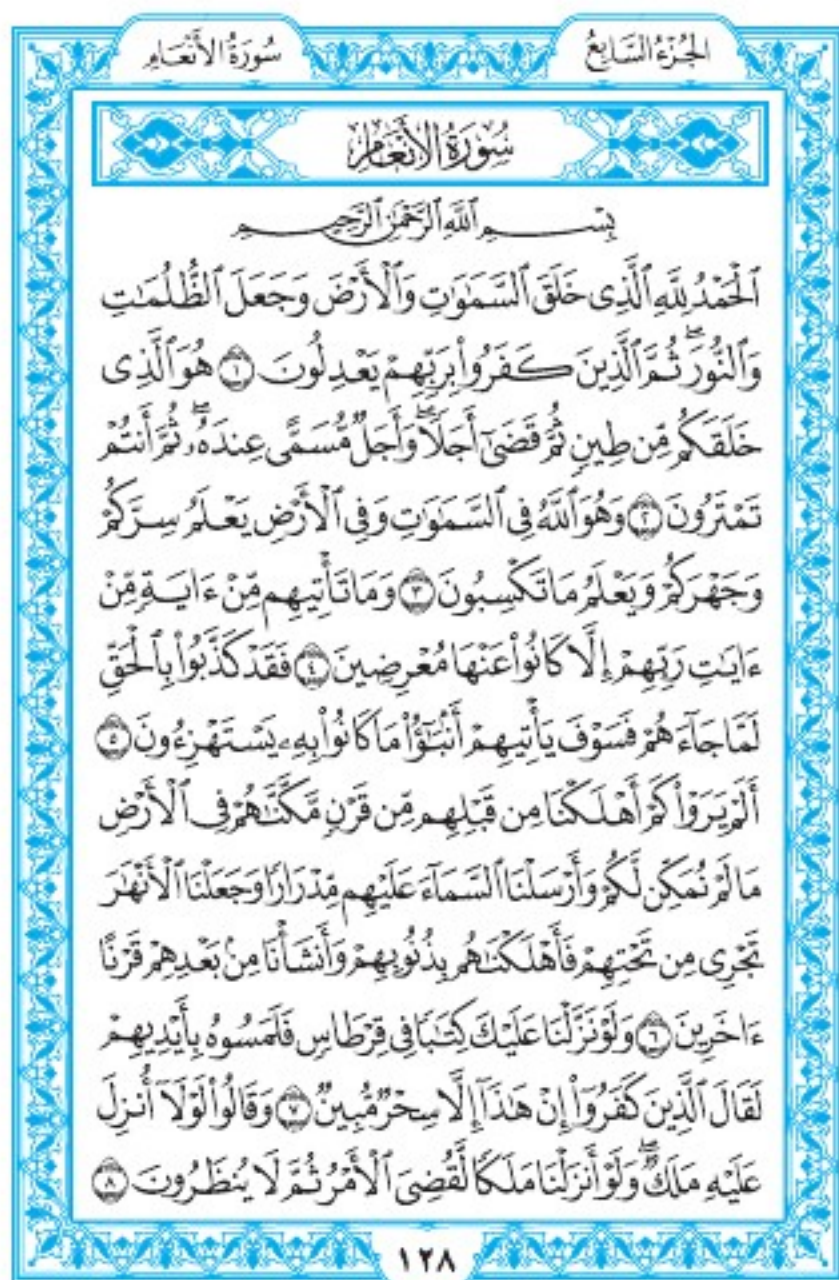 الجُزْءُ السَّابِعُ
سُورَةُ الأَنْعَامِ
سُورَةُ الأَنْعَامِ
بِسْمِ ٱللَّهِ ٱلرَّحْمَٰنِ ٱلرَّحِيمِ
ٱلْحَمْدُ لِلَّهِ ٱلَّذِى خَلَقَ ٱلسَّمَٰوَٰتِ وَٱلْأَرْضَ وَجَعَلَ ٱلظُّلُمَٰتِ
وَٱلنُّورَ ۖ ثُمَّ ٱلَّذِينَ كَفَرُوا۟ بِرَبِّهِمْ يَعْدِلُونَ ١ هُوَ ٱلَّذِى
خَلَقَكُم مِّن طِينٍ ثُمَّ قَضَىٰٓ أَجَلًا ۖ وَأَجَلٌ مُّسَمًّى عِندَهُۥ ۖ ثُمَّ أَنتُمْ
تَمْتَرُونَ ٢ وَهُوَ ٱللَّهُ فِى ٱلسَّمَٰوَٰتِ وَفِى ٱلْأَرْضِ يَعْلَمُ سِرَّكُمْ
وَجَهْرَكُمْ وَيَعْلَمُ مَا تَكْسِبُونَ ٣ وَمَا تَأْتِيهِم مِّنْ ءَايَةٍ مِّنْ
ءَايَٰتِ رَبِّهِمْ إِلَّا كَانُوا۟ عَنْهَا مُعْرِضِينَ ٤ فَقَدْ كَذَّبُوا۟ بِٱلْحَقِّ
لَمَّا جَآءَهُمْ فَسَوْفَ يَأْتِيهِمْ أَنۢبَٰٓؤُا۟ مَا كَانُوا۟ بِهِۦ يَسْتَهْزِءُونَ ٥
أَلَمْ يَرَوْا۟ كَمْ أَهْلَكْنَا مِن قَبْلِهِم مِّن قَرْنٍ مَّكَّنَّٰهُمْ فِى ٱلْأَرْضِ
مَا لَمْ نُمَكِّن لَّكُمْ وَأَرْسَلْنَا ٱلسَّمَآءَ عَلَيْهِم مِّدْرَارًا وَجَعَلْنَا ٱلْأَنْهَٰرَ
تَجْرِى مِن تَحْتِهِمْ فَأَهْلَكْنَٰهُم بِذُنُوبِهِمْ وَأَنشَأْنَا مِنۢ بَعْدِهِمْ قَرْنًا
ءَاخَرِينَ ٦ وَلَوْ نَزَّلْنَا عَلَيْكَ كِتَٰبًا فِى قِرْطَاسٍ فَلَمَسُوهُ بِأَيْدِيهِمْ
لَقَالَ ٱلَّذِينَ كَفَرُوٓا۟ إِنْ هَٰذَآ إِلَّا سِحْرٌ مُّبِينٌ ٧ وَقَالُوا۟ لَوْلَآ أُنزِلَ
عَلَيْهِ مَلَكٌ ۖ وَلَوْ أَنزَلْنَا مَلَكًا لَّقُضِىَ ٱلْأَمْرُ ثُمَّ لَا يُنظَرُونَ ٨
١٢٨